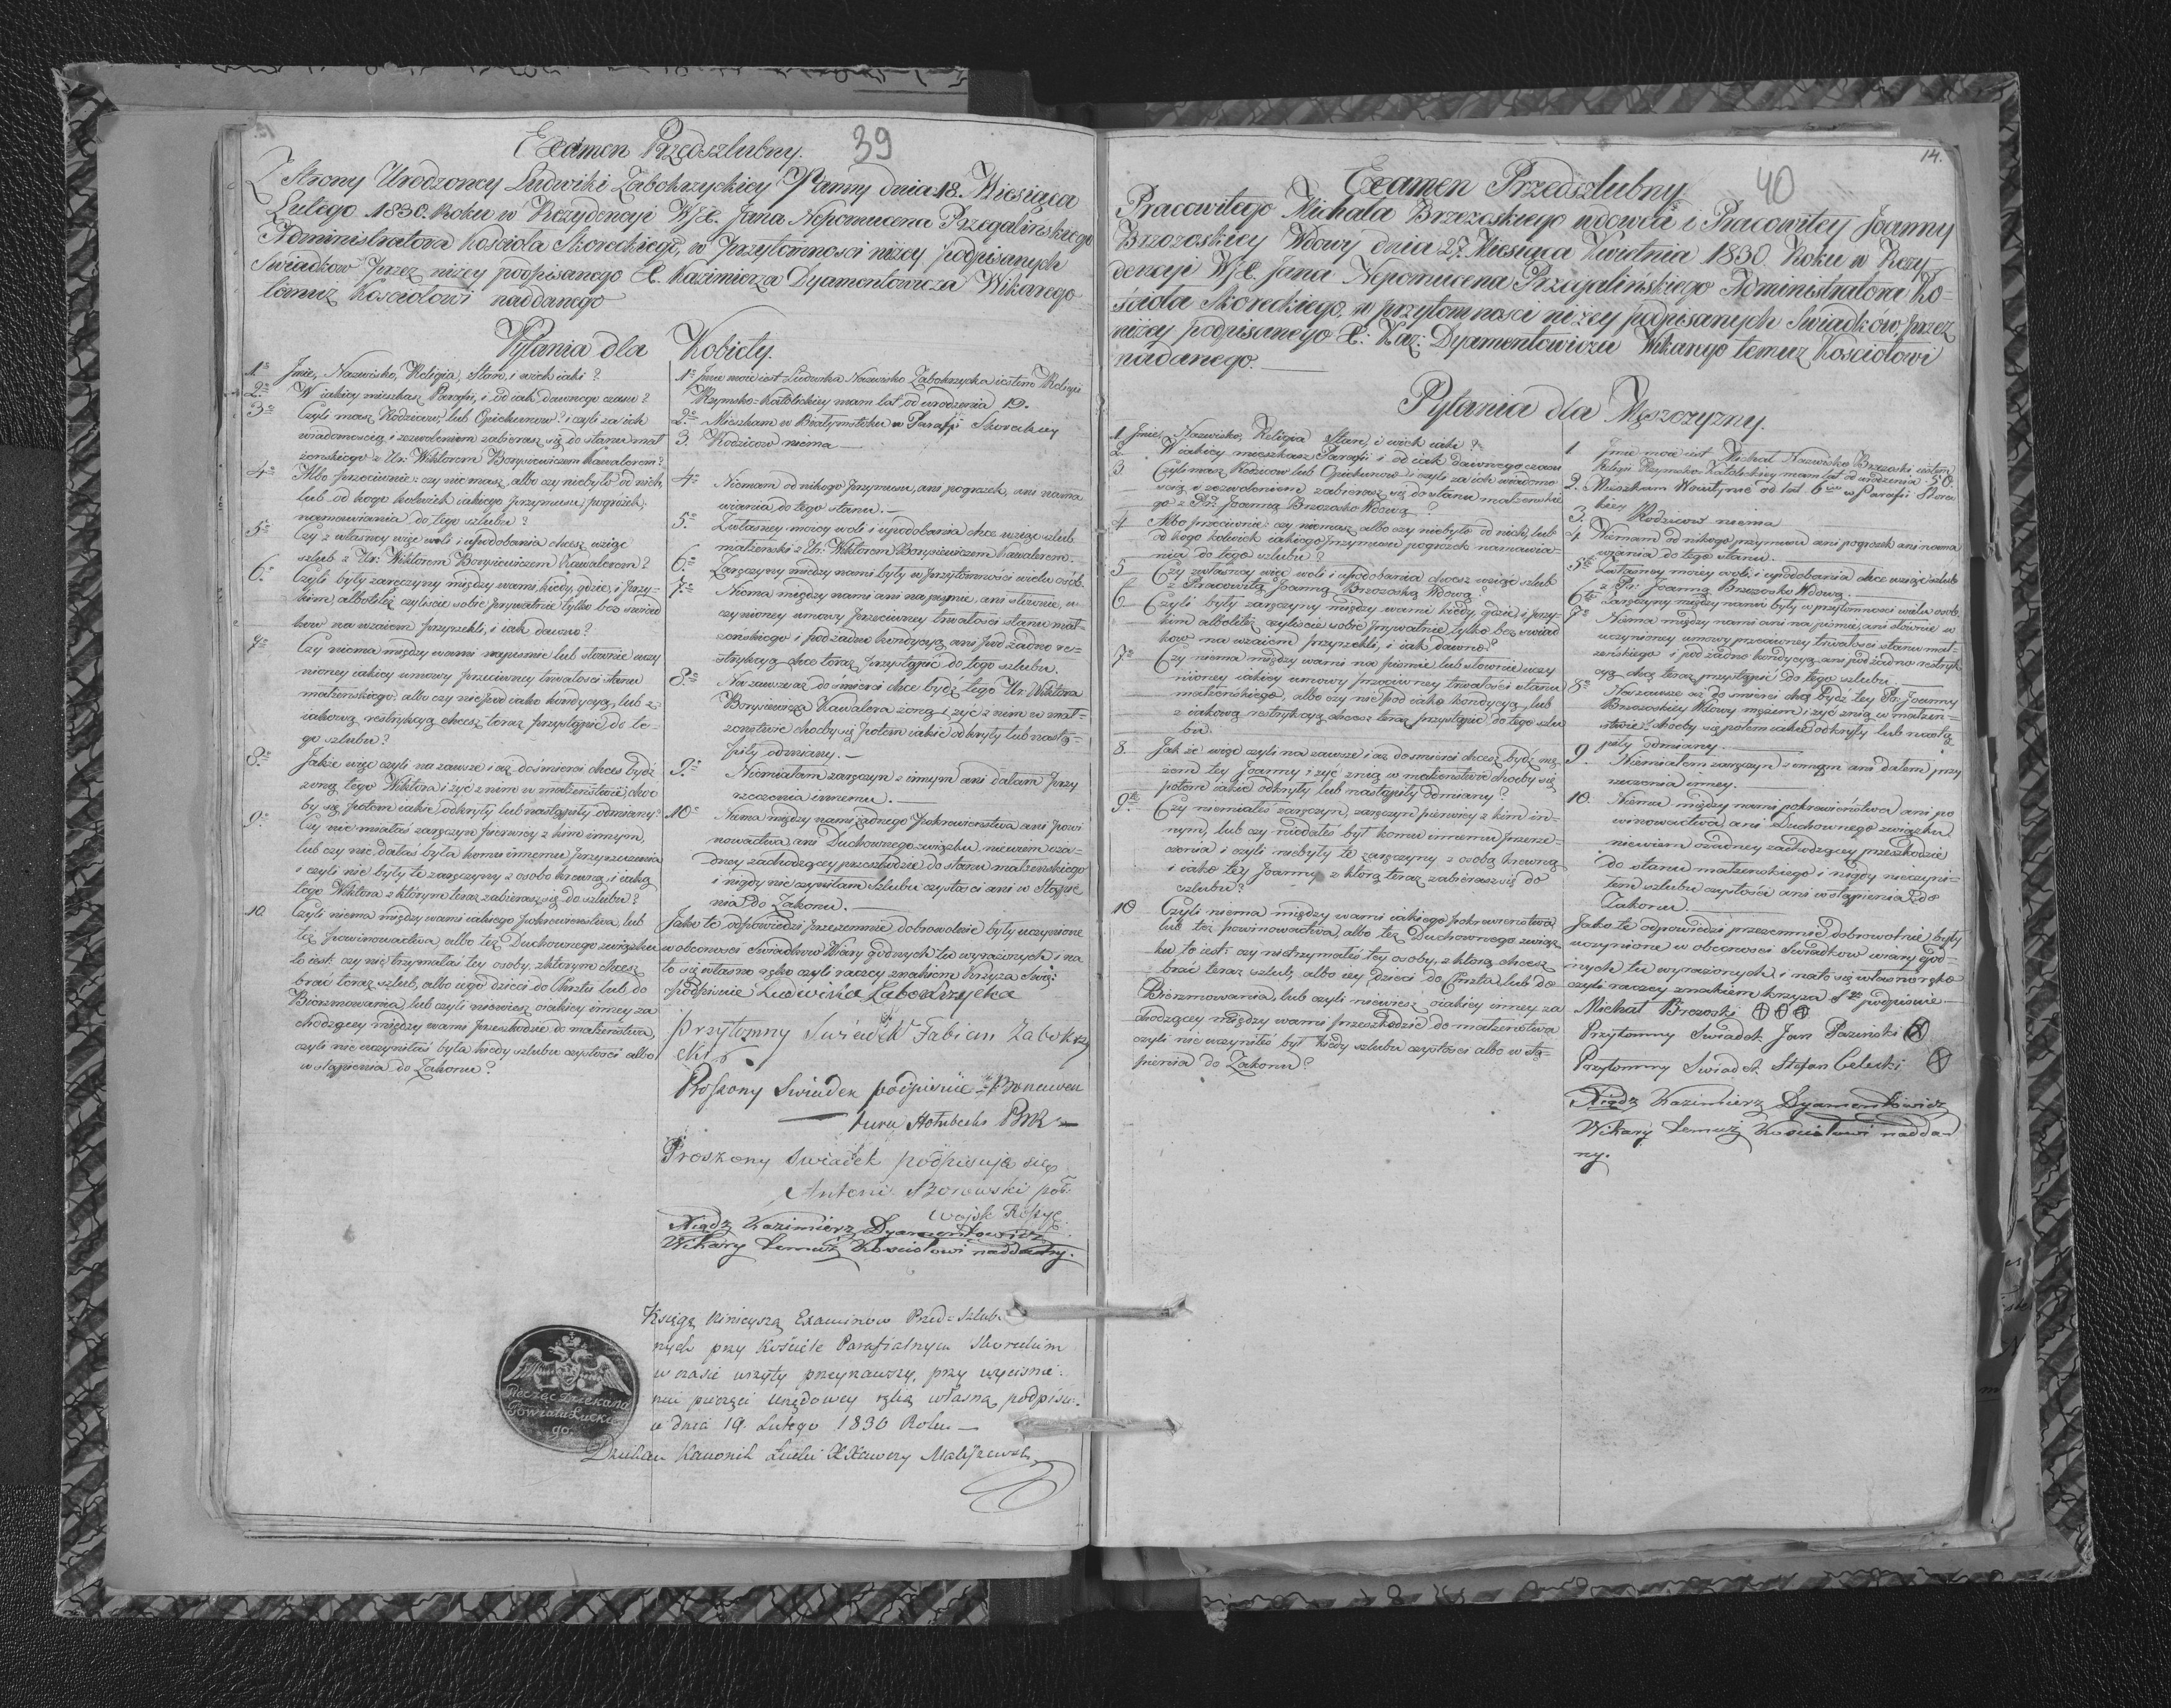 39
Examen Przedszlubny.
Z Strony Urodzoney Ludwiki Zabokrzyckiey Panny dnia 18. Miesiąca
Lutego 1830. Roku w Rezydencyi WJX. Jana Nepomucena Przegalińskiego
Administratora Kościoła Skoreckiego, w przytomności niżey podpisanych
Swiadkow przez niżey podpisanego X. Kazimierza Dyamentowicza Wikarego
temuż Kosciołowi naddanego
Pytania dla Kobiety.
1o Jmie, Nazwisko, Religia, Stan, i wiek iaki?
2o W iakiey mieszkasz Parafii, i od iak dawnego czasu?
3o Czyli masz Rodzicow, lub Opiekunow? i czyli za ich
wiadomoscią i zezwoleniem zabierasz się do stanu mał
żenskiego z Ur: Wiktorem Borysiewiczem Kawalerem?
4o Albo przeciwnie: czy nie masz, albo czy niebyło od nich,
lub od kogo kolwiek iakiego przymusu, pogrożek,
namowiania do tego szlubu?
5o Czy z własney więc woli i upodobania chcesz wziąć
szlub z Ur: Wiktorem Borysiewiczem Kawalerem?
6o Czyli były zaręczyny między wami, kiedy, gdzie, i przy
kim, albo też czyliście sobie prywatnie tylko bez swiad
kow na wzaiem przyrzekli, i iak dawno?
7o Czy niema między wami na pismie lub słownie uczy
nioney iakiey umowy przeciwney trwałości stanu
małżenskiego, albo czy nie pod iako kondycyą, lub z
iakową restrykcyą chcesz teraz przystąpić do te-
go szlubu?
8o Jakże więc czyli na zawsze i aż do śmierci chcesz bydź
żoną tego Wiktora i żyć z nim w małżenstwie, cho
by się potem iakie odkryły lub nastąpiły odmiany?
9o Czy nie miałaś zaręczyn pierwey z kim innym,
lub czy nie dałaś była komu innemu przyrzeczenia
i czyli nie były te zaręczyny z osobą krewną, i iaką
tego Wiktora z którym teraz zabierasz się do szlubu?
10 Czyli niema między wami iakiego pokrewieństwa, lub
też powinowactwa, albo też Duchownego związku
to iest: czy nie trzymałaś tey osoby, z którym chcesz
brać teraz szlub, albo iego dzieci do Chrztu lub do
Bierzmowania, lub czyli niewiesz o iakiey inney za
chodzącey między wami przeszkodzie do małżeństwa,
czyli nie uczyniłaś była kiedy szlubu czystości albo
wstąpienia do Zakonu?
1o Jmie moie iest Ludwika Nazwisko Zabokrzycka iestem Religii
Rzymsko-Katolickiey mam lat od urodzenia 19.
2o Mieszkam w Białymstoku w Parafii Skorckiey
3. Rodzicow niema
4o Niemam od nikogo przymusu, ani pogrożek, ani namo
wiania do tego stanu.
5o Z własney moiey woli i upodobania chce wziąć szlub
małżenski z Ur: Wiktorem Borysiewiczem Kawalerem.
6o Zaręczyny między nami były w przytomności wielu osób.
7o Niema między nami ani na pismie, ani słownie, u-
czynioney umowy przeciwney trwałości stanu mał-
żenskiego i pod żadną kondycyą ani pod żadną re-
strykcyą chce teraz przystąpić do tego szlubu.
8o Na zawsze aż do śmierci chce bydź tego Ur: Wiktora
Borysiewicza Kawalera żoną i żyć z nim w mał-
żenstwie choćby się potem iakie odkryły lub nastą-
piły odmiany.
9o Niemiałam zaręczyn z innym ani dałam przy
rzeczenia innemu.
10o Niema między nami żadnego pokrewieństwa ani powi
nowactwa, ani Duchownego związku, niewiem oza-
dney zachodzącey przeszkodzie do stanu małżenskiego
i nigdy nie czyniłam Szlubu czystości ani w Stąpie
nia do Zakonu.
Jako te odpowiedzi przezemnie dobrowolnie były uczynione
w obecności Swiadkow Wiary godnych tu wyrażonych i na
to się własną ręką czyli raczey znakiem Krzyża Swię:
podpisuie Ludwika Zabokrzycka
przytomny Swiadek Fabian Zabokrzy
cki
Proszony Swiadek podpisuie się Bonawen
tura Hołubecki
Proszony Swiadek podpisuje się
Antoni Borowski
Wojsk
Xiądz Kazimierz Dyamentowicz
Wikary temuż Kościołowi naddadny.
Księgę Ninieyszą Examinow Przed-Szlub-
nych przy Kościele Parafialnym Skoreckim
w czasie wizyty przeyrzawszy, przy wyciśnie-
niu pieczęci urzędowey ręką własną podpisu-
ie dnia 19. Lutego 1830 Roku
Dziekan Kanonik Łucki X Xawery Maliszewski
Pieczęć Dziekana
Powiatu Łuckie
go.
14.
40
Examen Przedszlubny
Pracowitego Michała Brzozoskiego wdowca i Pracowitey Joanny
Brzozoskiey Wdowy dnia 27. Miesiąca Kwietnia 1830. Roku w Rezy-
dencyi WJX. Jana Nepomucena Przegalińskiego Administratora Ko-
ścioła Skoreckiego, w przytomności niżey podpisanych Swiadków, przez
niżey podpisanego X: Kaz: Dyamentowicza Wikarego temuz Kosciołowi
naddanego.
Pytania dla Męszczyzny.
1 Jmie, Nazwisko, Religia Stan, i wiek iaki?
2. W iakiey mieszkasz Parafii i od iak dawnego czasu
3 Czyli masz Rodzicow lub Opiekunow i czyli za ich wiadomo
scią i zezwoleniem zabierasz się do stanu małżenskie
go z Pr: Joanną Brzozosko Wdową?
4 Albo przeciwnie: czy niemasz albo czy niebyło od nich, lub
od kogo kolwiek iakiego przymusu pogrożek namawia-
nia do tego szlubu?
5 Czy z własney więc woli i upodobania chcesz wziąć szlub
z Pracowitą Joanną Brzozoską Wdową?
6 Czyli były zaręczyny między wami kiedy, gdzie, i przy
kim albo też czyliście sobie prywatnie tylko bez swiad
kow na wzaiem przyrzekli, i iak dawno?
7o Czy niema między wami na pismie lub słownie uczy
nioney iakiey umowy przeciwney trwałości stanu
małżenskiego, albo czy nie pod iaką kondycyą, lub
z iakową restrykcyą chcesz teraz przystąpić do tego szlu
bu.
8. Jak że więc czyli na zawsze i aż do smierci chcesz bydź mę
żem tey Joanny i żyć znią w małżenstwie choćby się
potem iakie odkryły lub nastąpiły odmiany?
9o Czy niemiałeś zaręczyn, zaręczyn pierwey z kim in-
nym, lub czy niedałeś był komu innemu przyrze-
czenia i czyli niebyły te zaręczyny z osobą krewną
i iako tey Joanny z którą teraz zabierasz się do
szlubu?
10 Czyli niema między wami iakiego pokrewieństwa
lub też powinowactwa, albo też Duchownego związ
ku to iest: czy nietrzymałeś tey osoby, z którą chcesz
brać teraz szlub, albo iey dzieci do Chrztu lub do
Bierzmowania, lub czyli niewiesz oiakiey inney za
chodzącey między wami przeszkodzie do małżeństwa
czyli nie uczyniłeś był kiedy szlubu czystości albo wstą-
pienia do Zakonu?
1 Jmie moie iest Michał Nazwisko Brzozoski iestem
Religii Rzymsko Katolickiey mam lat od urodzenia 50.
2. Mieszkam od lat 6 w Parafii Skorec
kiey
3. Rodzicow niema
4 Niemam od nikogo przymusu ani pogrożek ani nama
wiania do tego stanu.
5o Z własney moiey woli i upodobania chce wziąć szlub
z Pr: Joanną Brzozosko Wdową.
6to Zaręczyny między nami były w przytomności wielu osób
7o Niema między nami ani na pismie, ani słownie w
uczynioney umowy przeciwney trwałości stanu mał-
żeńskiego i pod żadno kondycyą ani pod żadno restryk
cyą chcę teraz przystąpić do tego szlubu.
8o Nazawsze aż do smierci chcę bydź tey Pr: Joanny
Brzozoskiey Wdowy mężem i żyć znią w małżen-
stwie choćby się potem iakie odkryły lub nastą
piły odmiany.
9. Niemiałem zaręczyn z inną ani dałem przy
rzeczenia inney.
10. Niema między nami pokrewieństwa ani po
winowactwa, ani Duchownego związku
niewiem ożadney zachodzącey przeszkodzie
do stanu małżenskiego i nigdy nieczyni-
łem szlubu czystości ani wstąpienia do
Zakonu.
Jako te odpowiedzi przezemnie dobrowolnie były
uczynione w obecności Swiadkow wiary god-
nych tu wyrażonych i nato się własnoręko
czyli raczey znakiem krzyża S podpisuie
Michał Brzozoski
Przytomny Swiadek Jan Pazinski
Przytomny Swiadek Stefan Celecki
Xiądz Kazimierz Dyamentowicz
Wikary temuż Kościołowi nadda
ny.